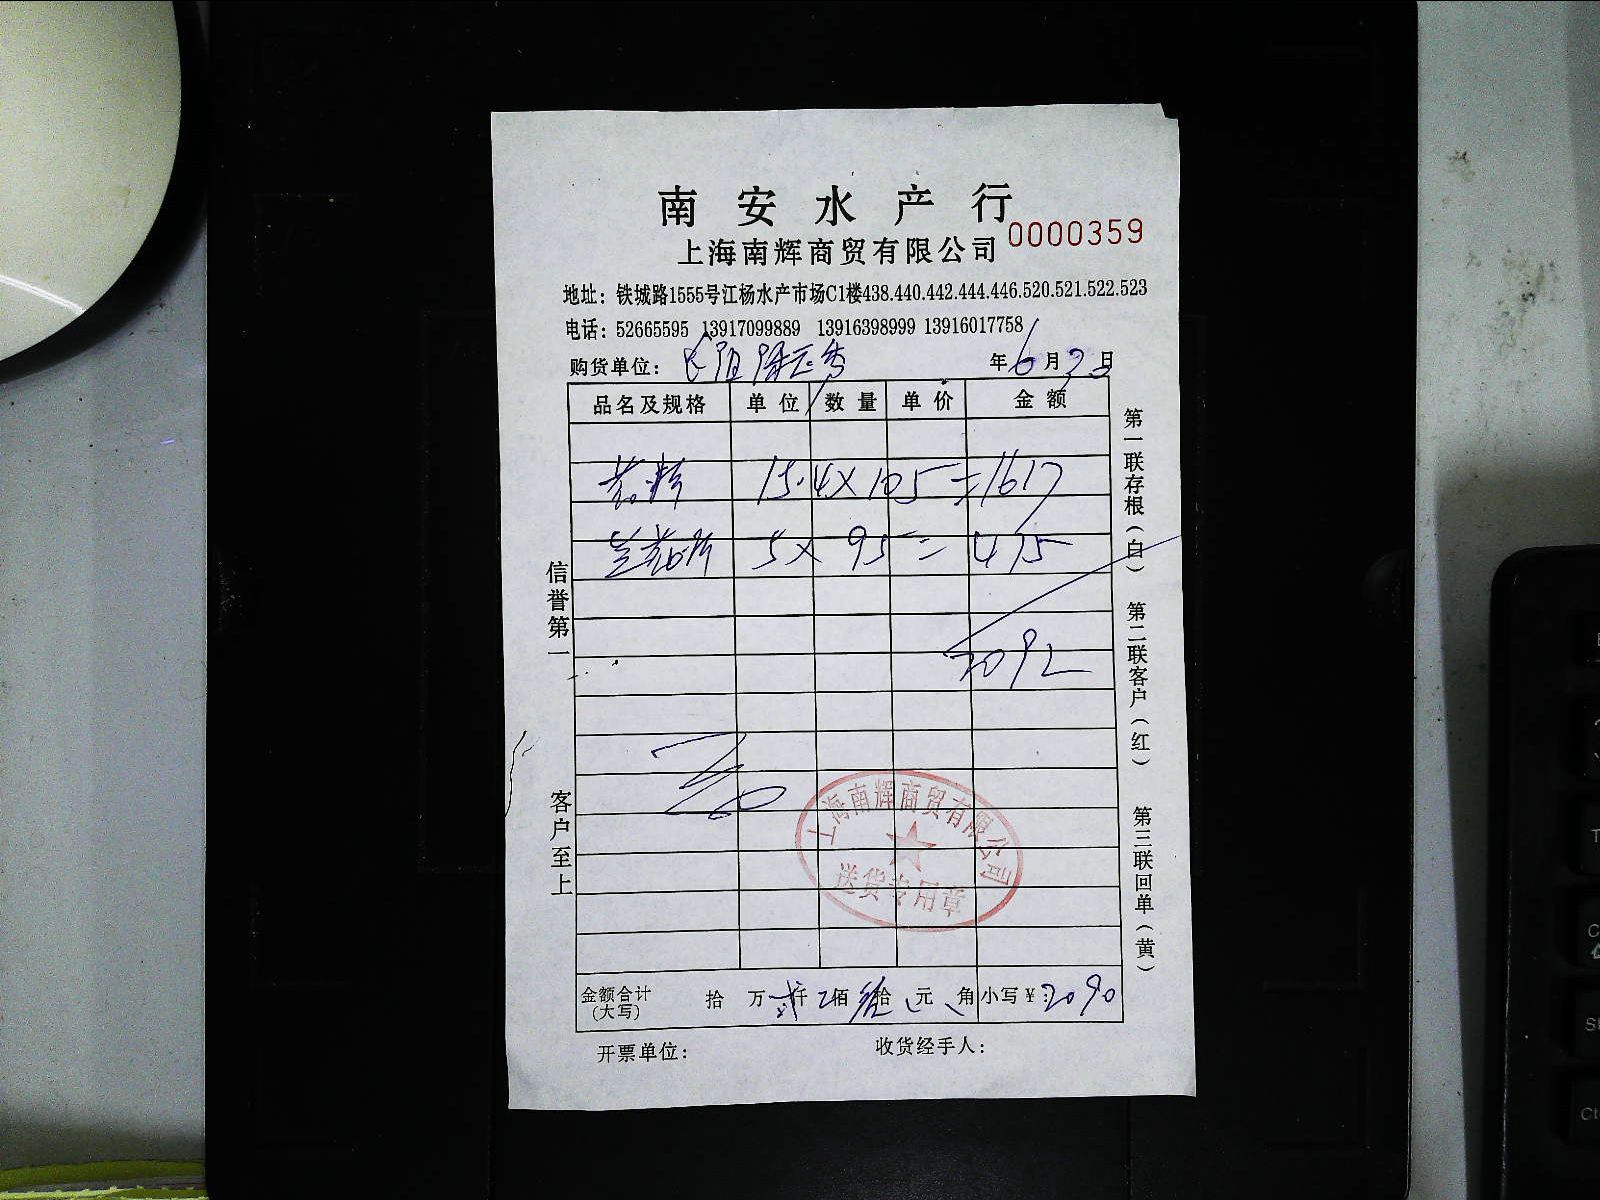 南安水产行
上海南辉商贸有限公司 0000359
地址：铁城路1555号江杨水产市场C1楼438.440.442.444.446.520.521.522.523
电话：52665595 13917099889 13916398999 13916017758
购货单位： 年6月 日
品名及规格 单位 数量 单价 金额
15.4×105=1617
5×95=475
2092
信誉第一
客户至上
第一联存根（白） 第二联客户（红） 第三联回单（黄）
上海南辉商贸有限公司
送货专用章
金额合计（大写） 拾 万 仟 佰 拾 元 角 小写￥：2090
开票单位： 收货经手人：